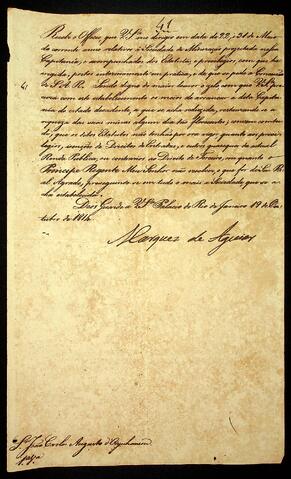 41
Recebi o Officio, que V.S.ª me dirigio em data de 22, e 31 de Maio
do corrente anno relativo á Sociedade de Mineração projectada nessa
Capitania, e acompanhado dos Estatutos, e privilegios, com que ha
erigida, postos interinamente em pratica, e de que se pede a Concessão
41
de S. A. R. Sendo digno de maior louvor o zelo com que V.S.ª pro
move com este estabelecimento os meios de arrancar a dita Capita
nia do estado decadente, a que se acha reduzida, restaurando a
riqueza das suas minas alguns dias tão florecentes; convem comtu
do, que os ditos Estatutos não tenhão por ora vigor, quanto aos privi
legios, izenção de Direitos de Entradas, e outros que oppõe da actual
Renda Publica, ou contrarios ao Direito de Terceiro, em quanto o
Principe Regente Meu Senhor não resolver, o que for do Seu Re
al Agrado, proseguindo-se em tudo o mais a Sociedade que se a
cha estabelecida.
Deos Guarde a V.S.ª Palacio do Rio de Janeiro 19 de Ou
tubro de 1814.
Marquez de Aguiar
S.r João Carlos Augusto d'Oeynhausen